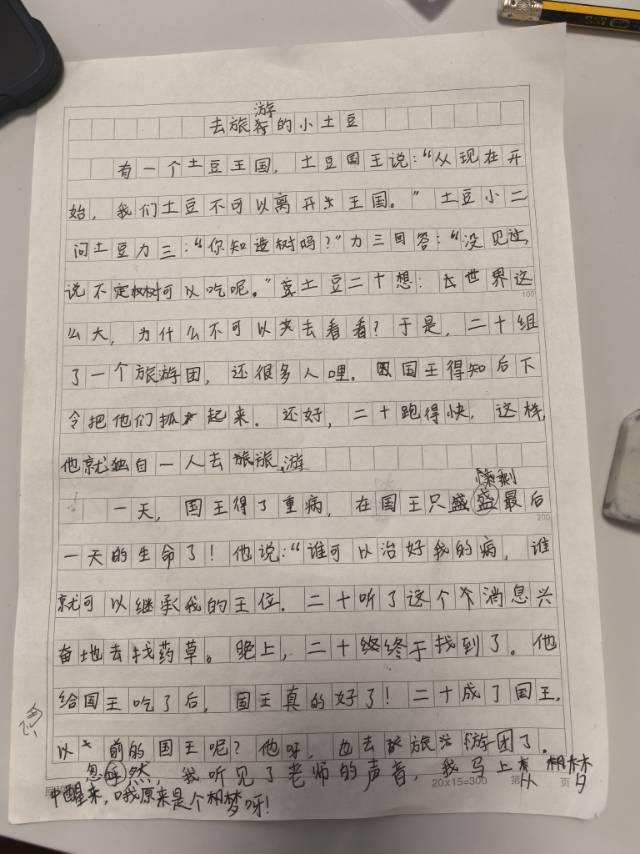 去旅游的小土豆
有一个土豆王国，土豆国王说：“从现在开
始，我们土豆不可以离开王国。”土豆小二
问土豆力三：“你知道树吗？”力三回答：“没见过，
说不定树可以吃呢。”土豆二十想：世界这
么大，为什么不可以去看看？于是，二十组
了一个旅游团，还很多人哩。国王得知后下
令把他们抓起来．还好，二十跑得快，这样
他就独自一人去旅游
一天，国王得了重病，在国王只剩最后
100
一天的生命了！他说：“谁可以治好我的病，谁
200
就可以继承我的王位．二十听了这个消息兴
奋地去找药草。晚上，二十终于找到了。他
给国王吃了后，国王真的好了！二十成了国王．
以前的国王呢？他呀，也去旅游团了．
忽然，我听见了老师的声音，我马上从梦
中醒来，哦原来是个梦呀！
20×15=300 第 页